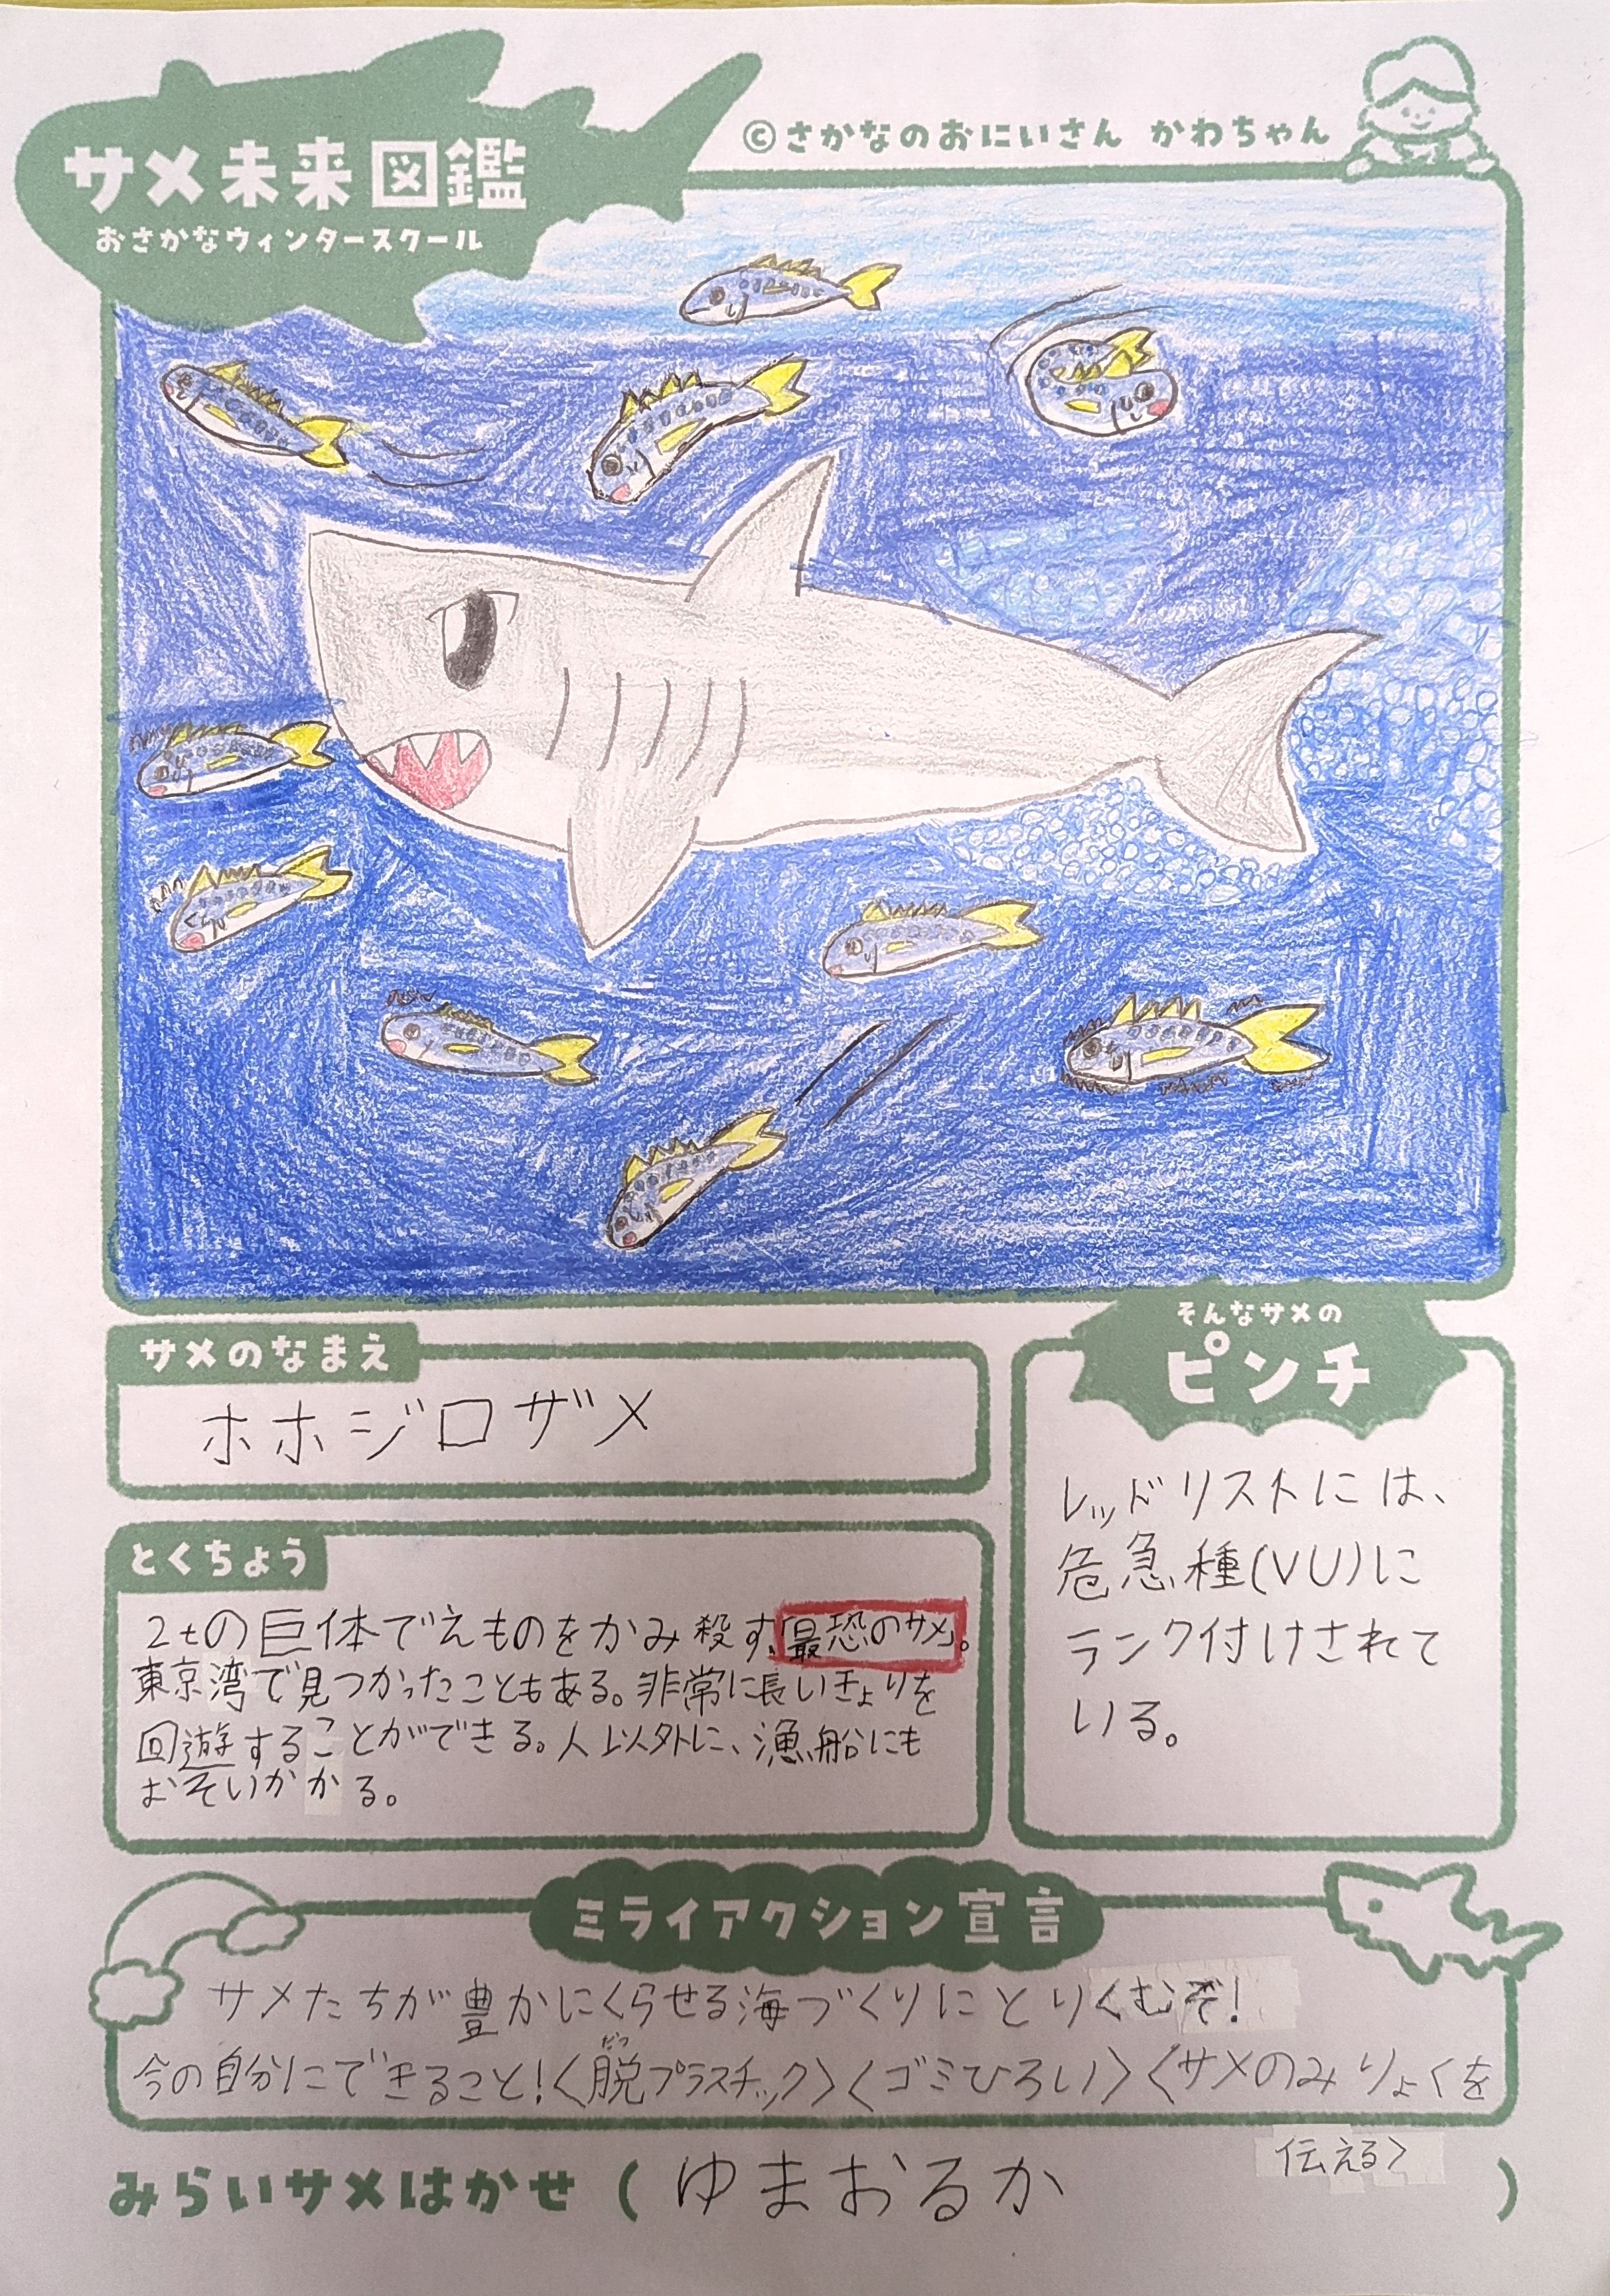 サメ未来図鑑
おさかなウィンタースクール
©さかなのおにいさん かわちゃん
サメのなまえ
ホホジロザメ
とくちょう
2tの巨体でえものをかみ殺す、「最恐のサメ」。
東京湾で見つかったこともある。非常に長いきょりを
回遊することができる。人以外に、漁船にも
おそいかかる。
そんなサメの
ピンチ
レッドリストには、
危急種(VU)に
ランク付けされて
いる。
ミライアクション宣言
サメたちが豊かにくらせる海づくりにとりくむぞ!
だつ
今の自分にできること!〈脱プラスチック〉〈ゴミひろい〉〈サメのみりょくを
伝える〉
みらいサメはかせ(ゆまおるか)